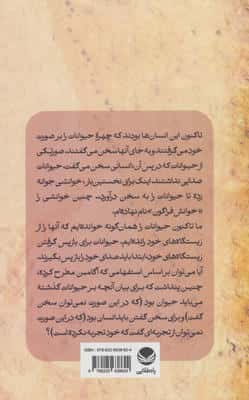 تاکنون این انسان‌ها بودند که چهرهٔ حیوانات را بر صورت
خود می‌گرفتند و به جای آنها سخن می‌گفتند، صورتکی
از حیوانات که در پس آن، انسانی سخن می‌گفت. حیوانات
صدایی نداشتند. اینک برای نخستین بار، خوانشی جوانه
زده تا حیوانات را به سخن درآورد. چنین خوانشی را
«خوانش فراگون» نام نهاده‌ام.
ما تاکنون حیوانات را همان‌گونه خوانده‌ایم که آنها را از
زیستگاه‌های خود رانده‌ایم. حیوانات برای بازپس گرفتن
زیستگاه‌های خود، ابتدا باید صدای خود را بازپس بگیرند.
آیا می‌توان بر اساس استفهامی که آگامبن مطرح کرده،
چنین پنداشت که برای بیان آنچه بر حیوانات گذشته
می‌باید حیوان بود (که در این صورت نمی‌توان سخن
گفت) و برای سخن گفتن باید انسان بود (که در این صورت
نمی‌توان از تجربه‌ای گفت که خود تجربه نکرده است)؟
ISBN: